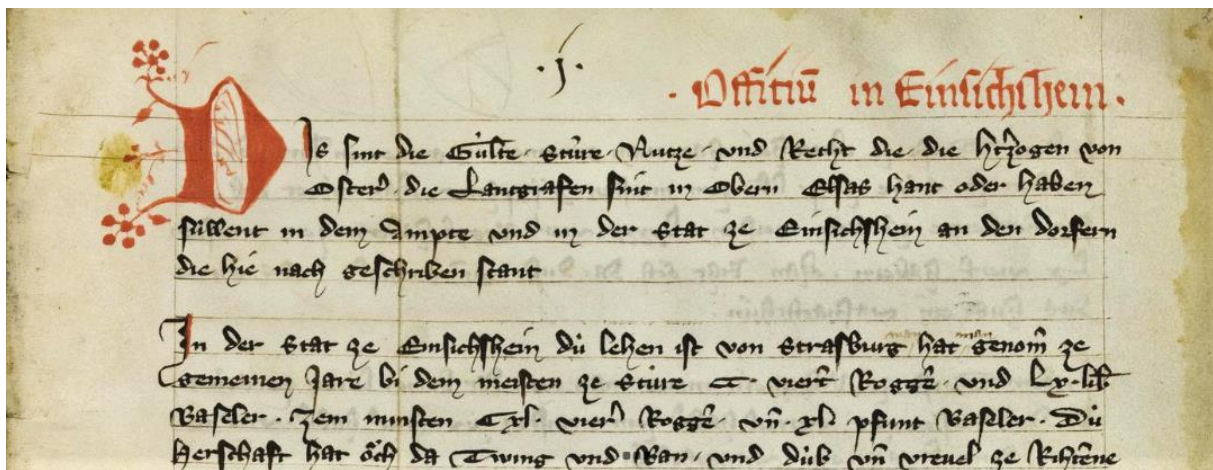 · j ·
· Offitiū in Einsichshein ·
Dis sint die Gúlte · Stúre · Nutze · vnd Recht die · die h'tzogen von
Oster̄ · die Lantgrafen sint in Obern Elsas hant oder haben
súllent in dem Ampte vnd in der Stat ze Einsichshein an den dorfern
die hie nach geschriben stant
In der Stat ze Einsichshein dú lehen ist von Strasburg hat man genom̄ ze
gemeinen Jare bi dem meisten ze Stúre C · viert̄ Roggē · vnd Lx · lib̄
Baseler · zem minsten Cxl · vier̄ Roggē · vn̄ · xl · pfunt Baseler · Dú
Herschaft hat ǒch da Twing vnd Ban · vnd dúb vn̄ vreuel ze Rihtene